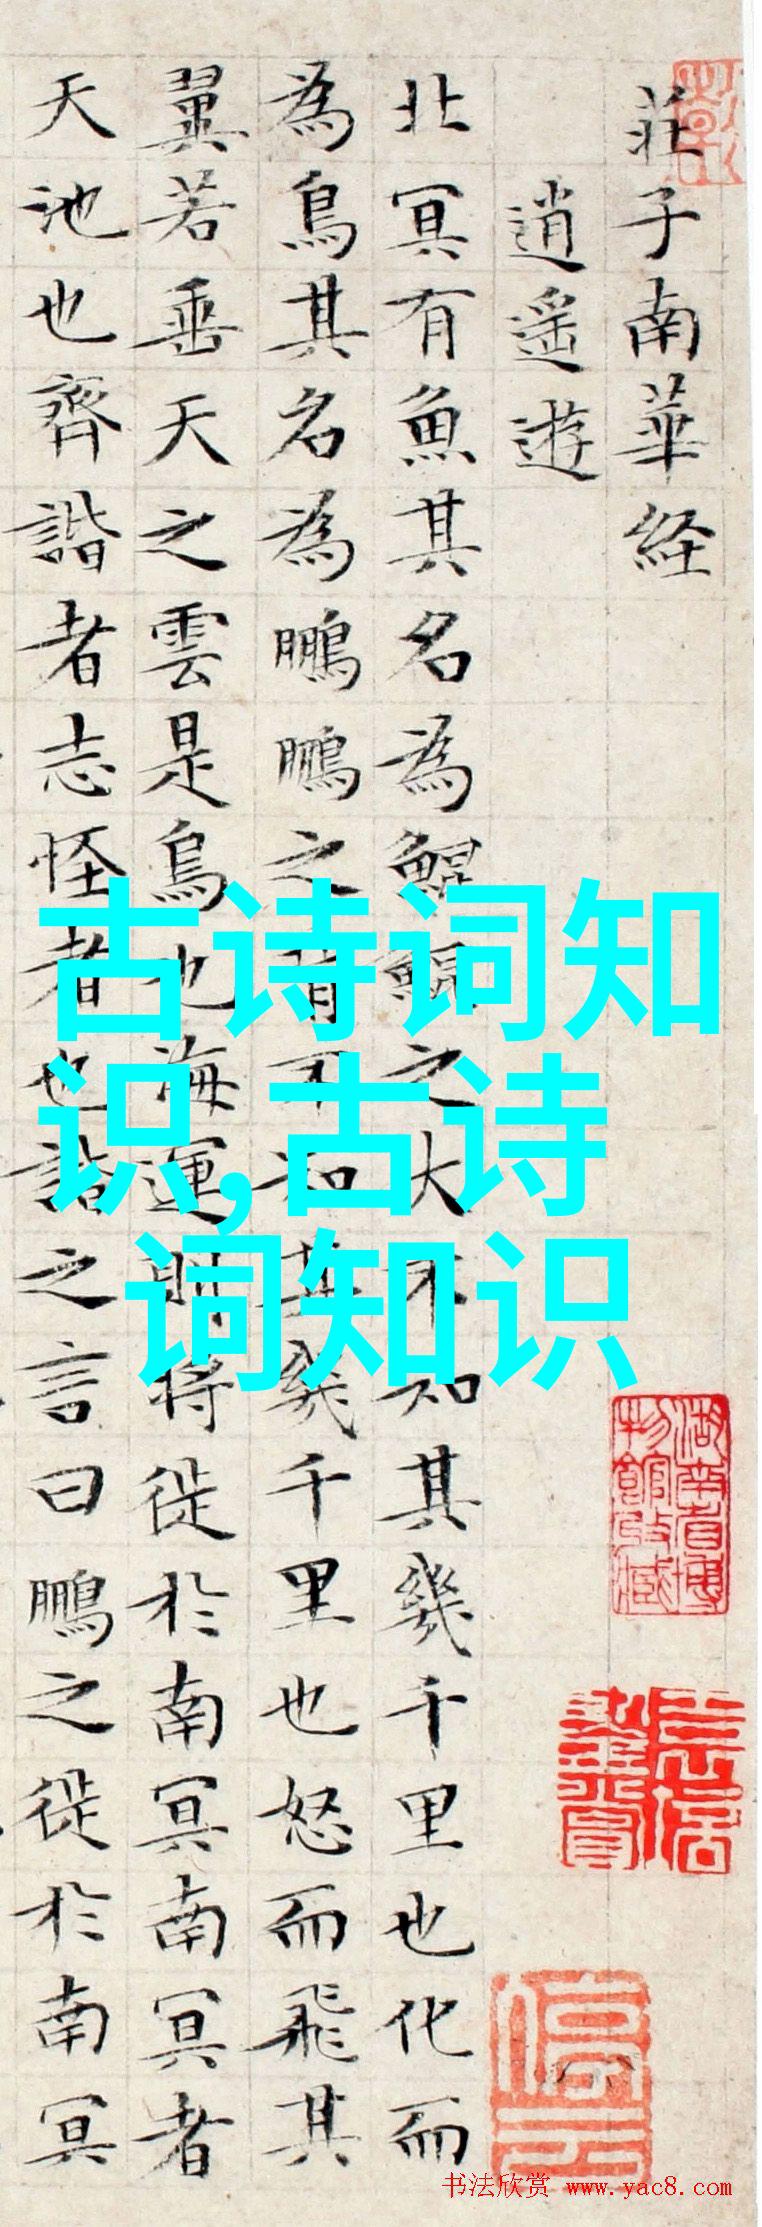 莊子南華経
逍遥遊
北冥有魚其名為鯤鯤之大不知其幾千里也化而
為鳥其名為鵬鵬之背不知其幾千里也怒而飛其
翼若垂天之雲是鳥也海運則将徙於南冥南冥者
天池也齊諧者志怪者也諧之言曰鵬之徙於南冥
古诗词知
识,古诗
词知识
湖南省博
物館收藏
书法欣赏 www.yac8.com